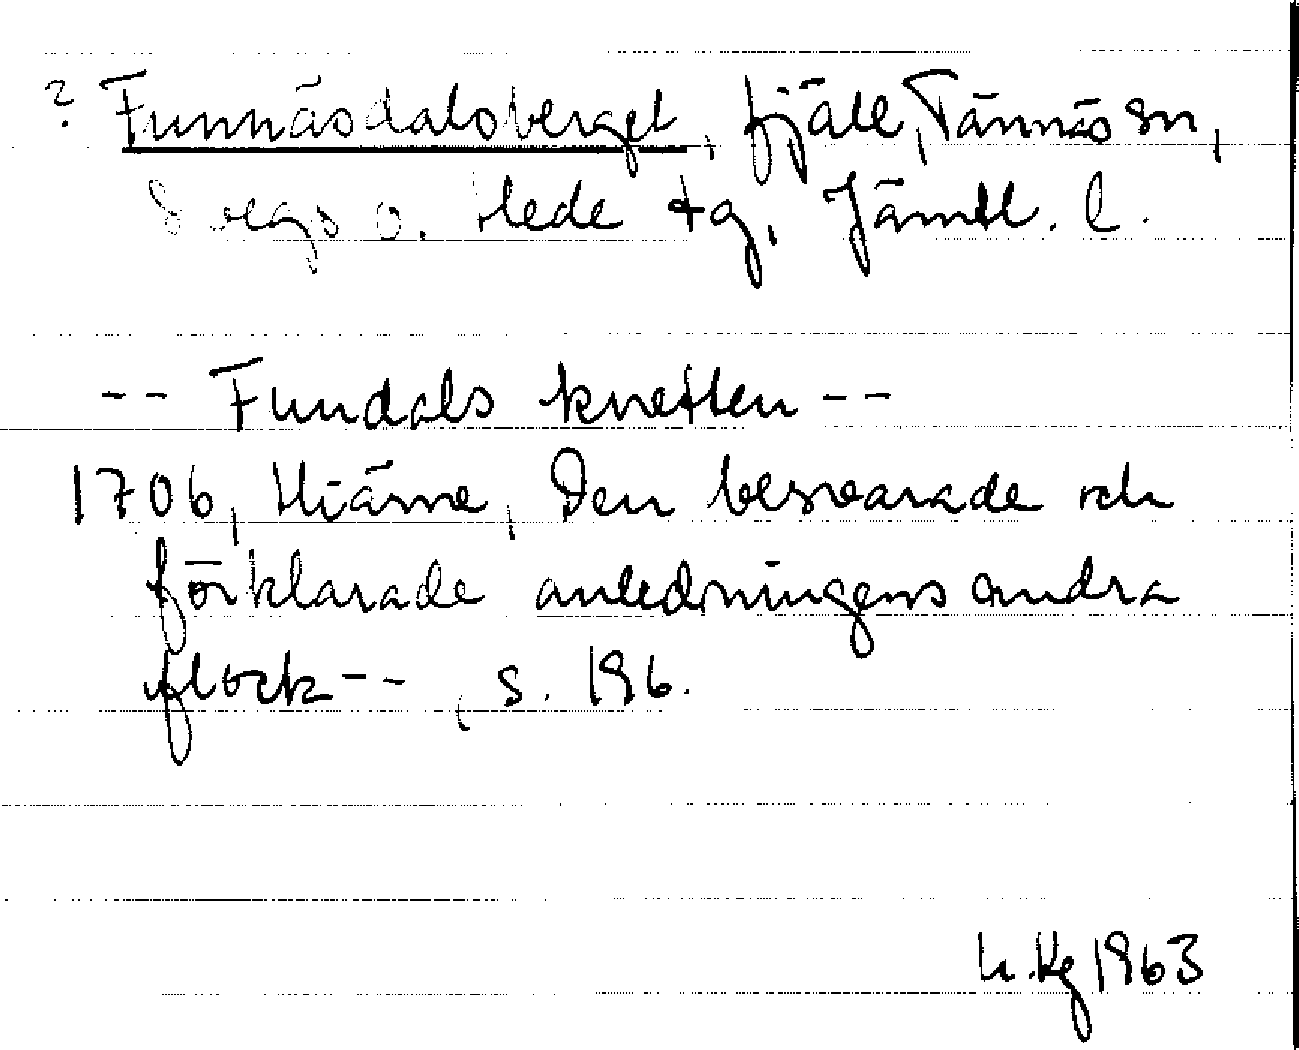 ? Funnäsdalsberget, fjäll, Tännäs sn,
Svegs o. Hede tg, Jämtl. l.
-- Fundals knetten --
1706, Hiärne, Den besvarade och
förklarade anledningens andra
flock --, s. 196.
1963